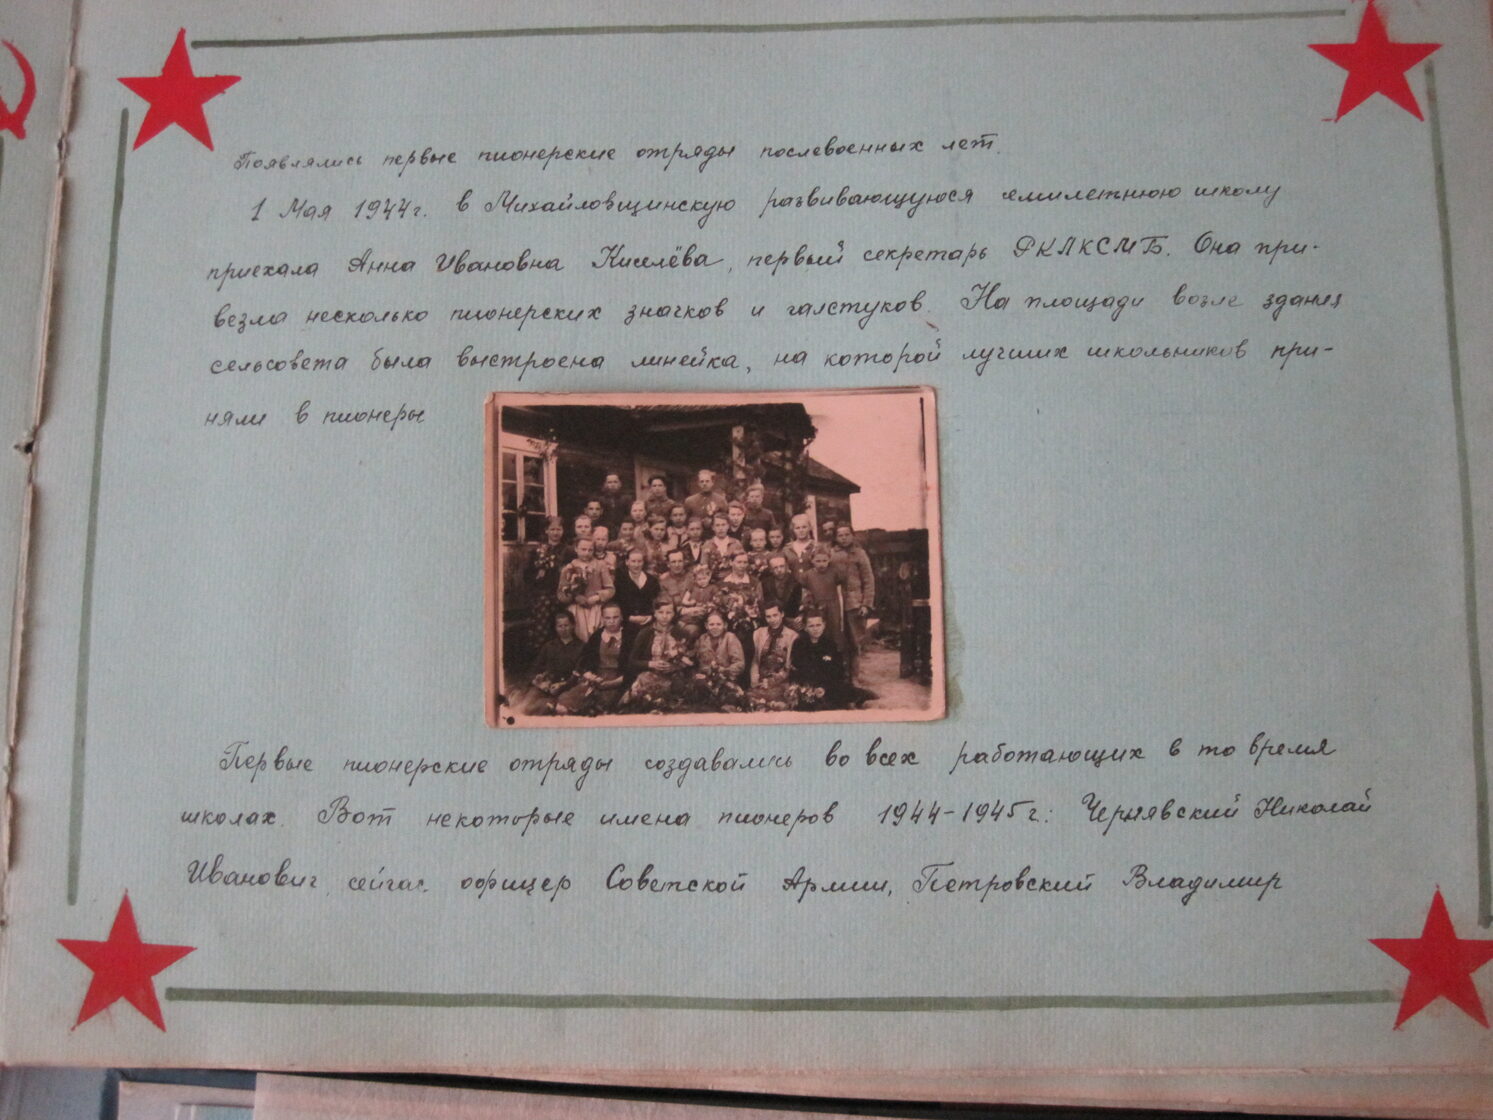 Появлялись первые пионерские отряды послевоенных лет.
1 Мая 1944г. в Михайловщинскую развивающуюся семилетнюю школу
приехала Анна Ивановна Киселёва, первый секретарь РКЛКСМБ. Она при-
везла несколько пионерских значков и галстуков. На площади возле здания
сельсовета была выстроена линейка, на которой лучших школьников при-
няли в пионеры
Первые пионерские отряды создавались во всех работающих в то время
школах. Вот некоторые имена пионеров 1944-1945г.: Чернявский Николай
Иванович сейчас офицер Советской Армии, Петровский Владимир